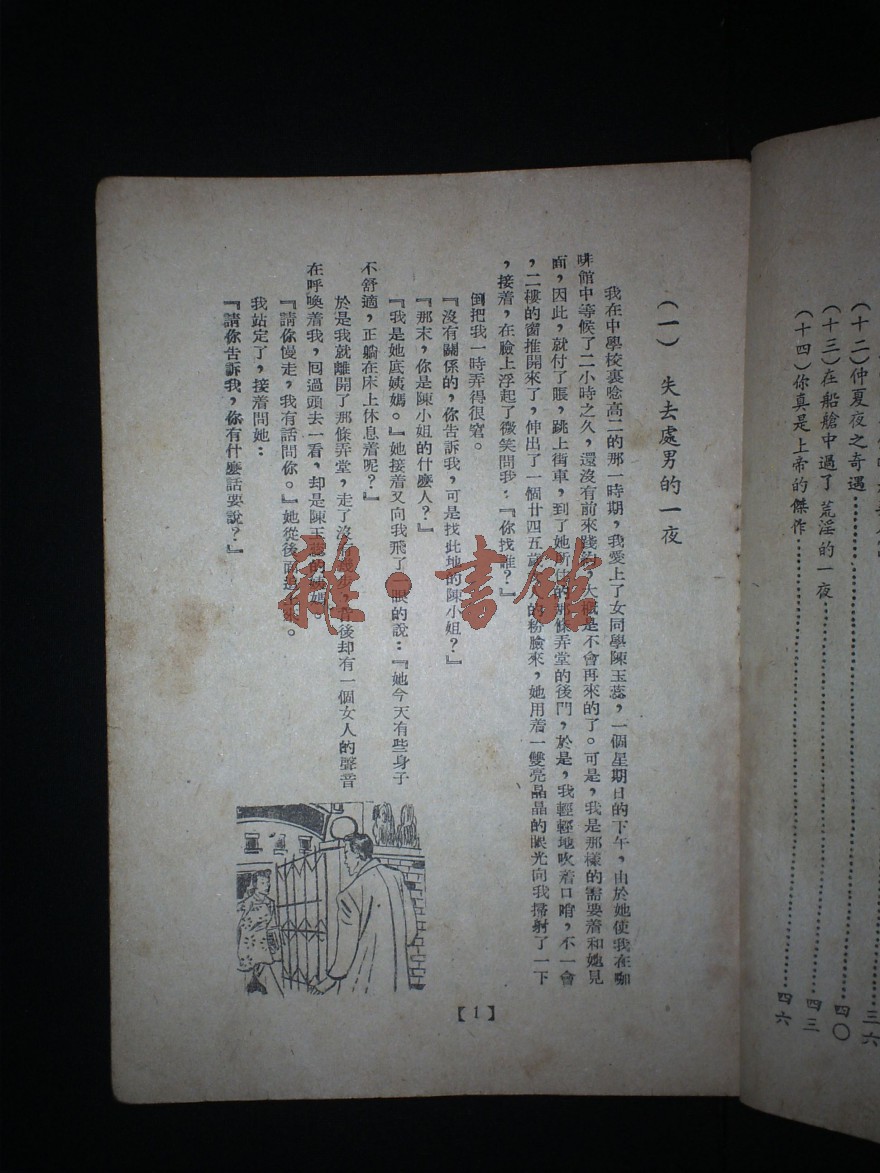 (十二)仲夏夜之奇遇……三六
(十三)在船艙中過了荒淫的一夜……四〇
(十四)你真是上帝的傑作……四六
(一) 失去處男的一夜
我在中學校裏唸高二的那一時期,我愛上了女同學陳玉蕊,一個星期日的下午,由於她使我在咖
啡館中等候了二小時之久,還沒有前來踐約,大概是不會再來的了。可是,我是那樣的需要着和她見
面,因此,就付了賬,跳上街車,到了她所住的那條弄堂的後門,於是,我輕輕地吹着口哨,不一會
,二樓的窗推開來了,伸出了一個廿四五歲的粉臉來,她用着一雙亮晶晶的眼光向我掃射了一下
,接着,在臉上浮起了微笑問我:『你找誰?』
倒把我一時弄得很窘。
『沒有關係的,你告訴我,可是找此地的陳小姐?』
『那末,你是陳小姐的什麼人?』
『我是她底姨媽。』她接着又向我飛了一眼的說:『她今天有些身子
不舒適,正躺在床上休息着呢?』
於是我就離開了那條弄堂,走了沒有後却有一個女人的聲音
在呼喚着我,囘過頭去一看,却是陳玉蕊的姨媽。
『請你慢走,我有話問你。』她從後面追了來。
我站定了,接着問她:
『請你告訴我,你有什麼話要說?』
【1】
雜·書館